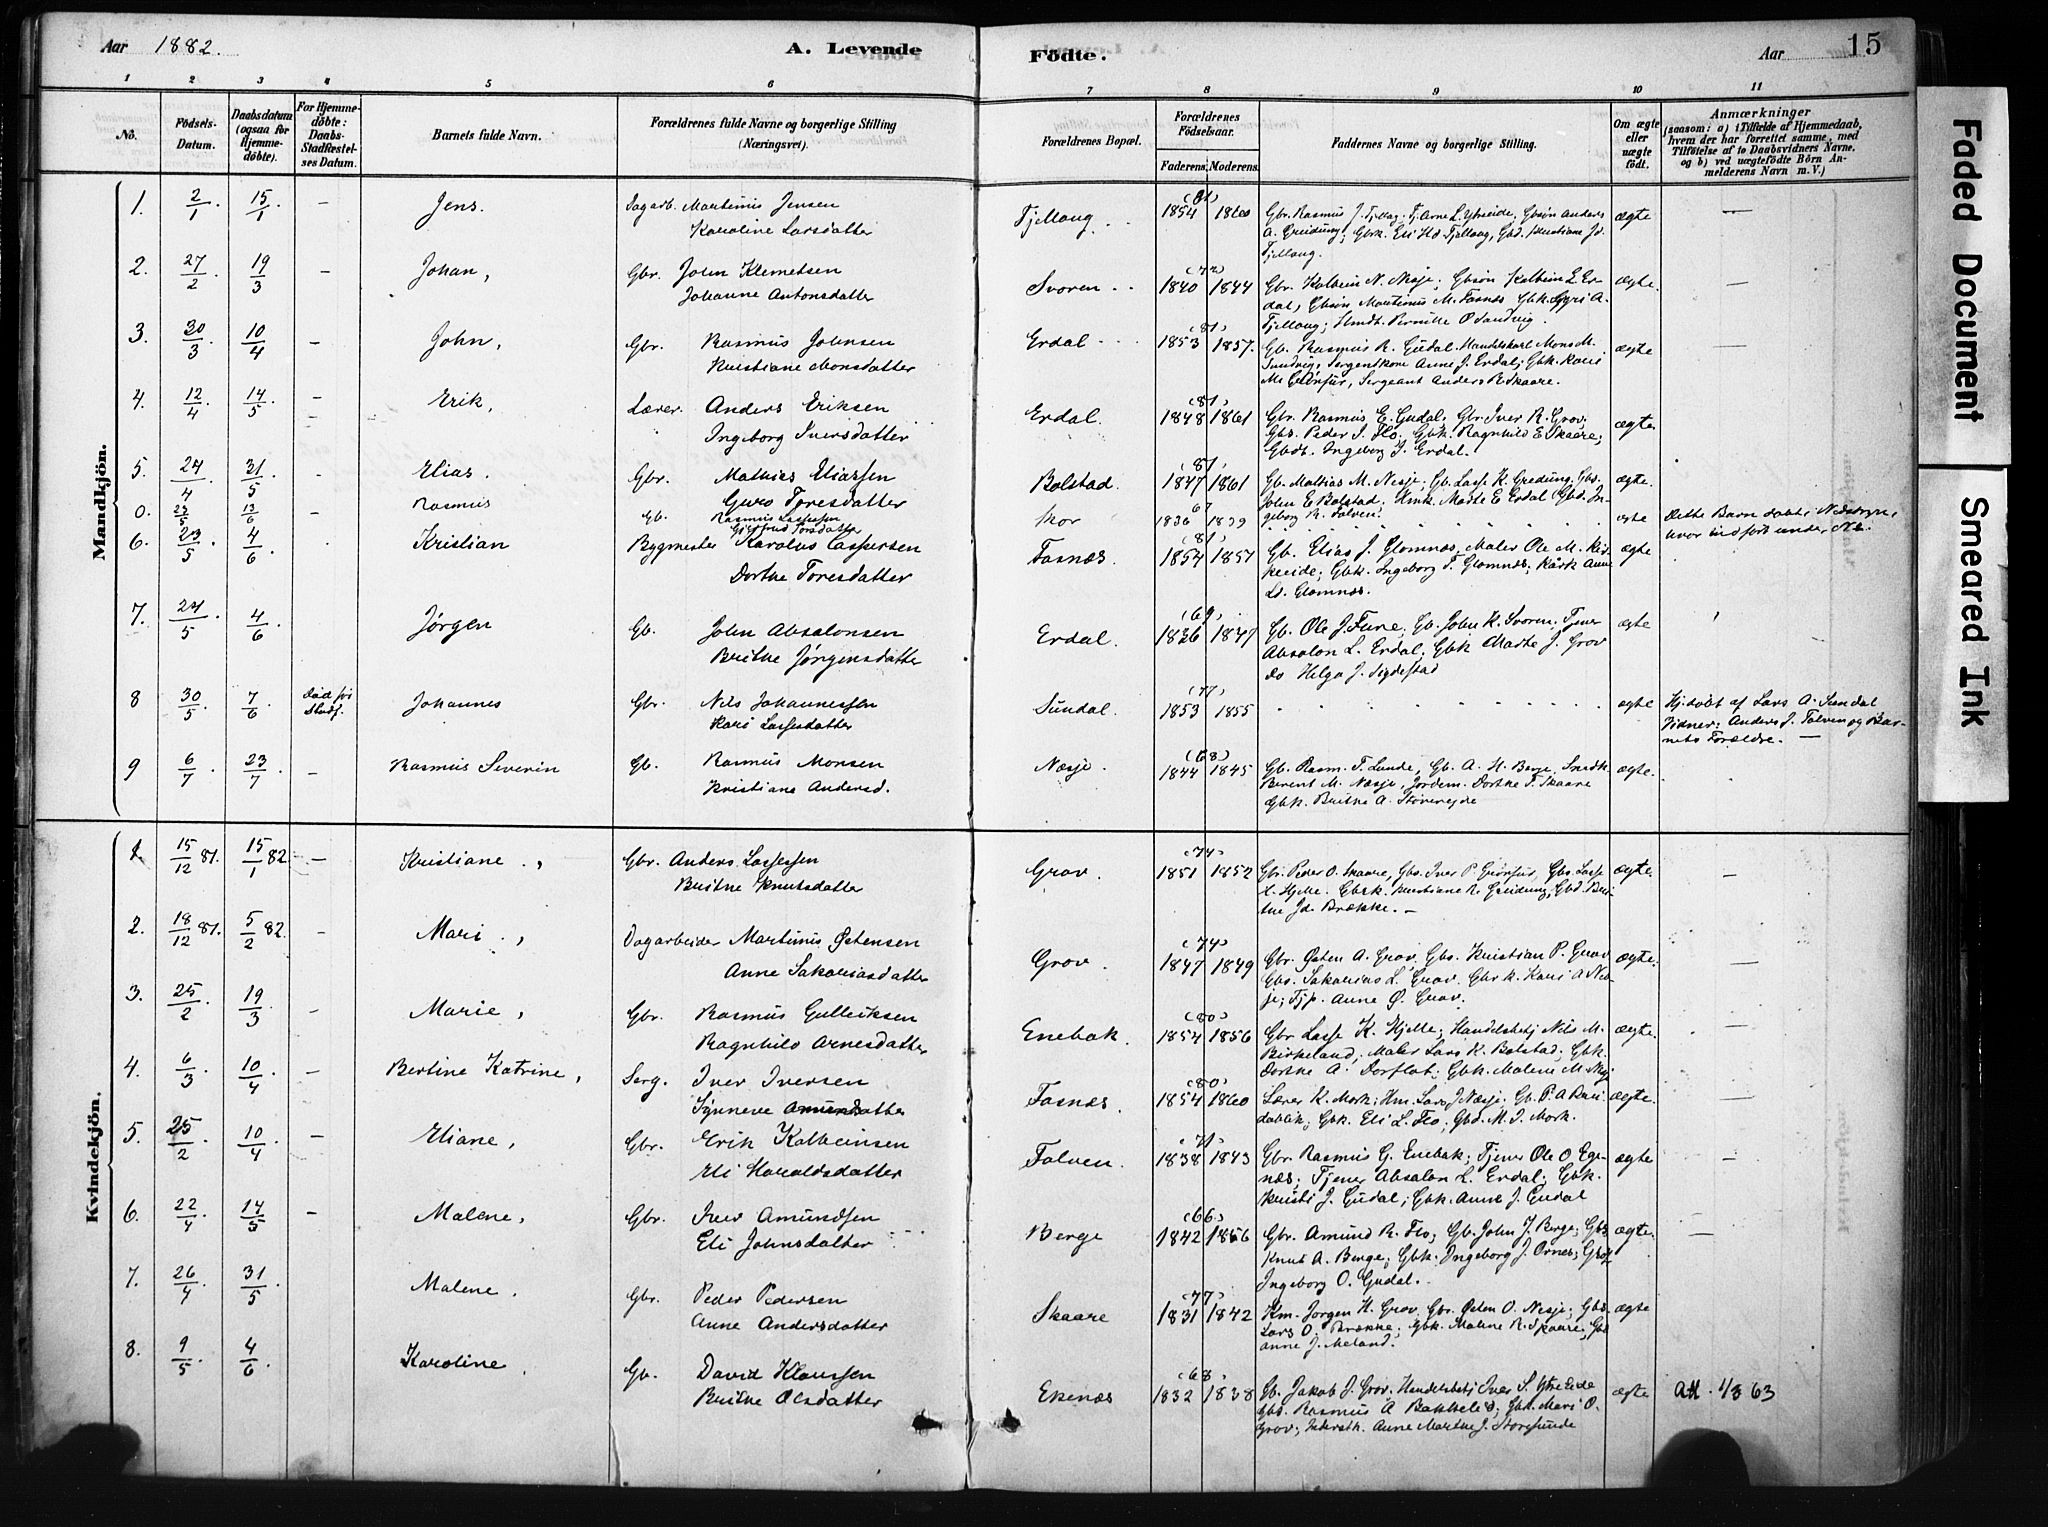 Aar 1882.
A. Levende
Fødte.
Aar
15
1 2 3 4 5 6 7 8 9 10 11
No.
Fødsels-Datum.
Daabsdatum (ogsaa for Hjemmedøbte).
For Hjemmedøbte: Daabs-Stadfæstelses Datum.
Barnets fulde Navn.
Forældrenes fulde Navne og borgerlige Stilling (Næringsvei).
Forældrenes Bopæl.
Forældrenes Fødselsaar.
Faderens. Moderens.
Faddernes Navne og borgerlige Stilling.
Om ægte eller uægte født.
Anmærkninger
(saasom: a) i Tilfælde af Hjemmedaab, hvem der har forrettet samme, med Tilføielse af to Daabsvidners Navne, og b) ved uægtefødte Børn Anmelderens Navn m. V.)
Mandkjön.
1. 2/1 15/1 – Jens. Dagarb. Martinus Jensen
Karoline Larsdatter
Tjellaug. (81) 1854 1860 Gbr. Rasmus J. Tjellaug. Tj. Arne L. Ytreeide, Gbsøn Anders ægte –
A. Greidung; Gbrk. Eli Hd. Tjellaug, Gbd. Kristiane Jd.
Tjellaug.
2. 27/2 19/3 – Johan, Gbr. John Klemetsen
Johanne Antonsdatter
Svoren (72) 1840 1844 Gbr. Kolbein N. Nesje; Gbsøn Kolbein E. Er- ægte –
dal, Gbsøn Martinus M. Fosnes Gbk. Gyri A.
Tjellaug; Hmdt. Pernille O. Sandvig.
3. 30/3 10/4 – John, Gbr. Rasmus Johnsen
Kristiane Monsdatter
Erdal (81) 1853 1857. Gb. Rasmus R. Gudal. Handelskarl Mons M. ægte –
Sundvig, Sergentkone Anne J. Erdal; Gbk. Kari
M. Grønfur, Sergeant Anders R. Skaare.
4. 12/4 14/5 – Erik, Lærer. Anders Eriksen
Ingeborg Iversdatter
Erdal. (81) 1848 1861 Gbr. Rasmus E. Gudal, Gbr. Iver R. Grov, ægte
Gbs. Peder I. Flo. Gbk. Ragnhild E. Skaare;
Gbdt. Ingeborg J. Erdal.
5. 24/4 31/5 - Elias. Gbr. Mathias Eliassen
Guro Toresdatter
Bolstad. (81) 1847 1861 Gb. Mathias M. Nesje; Gb. Lasse K. Greidung, Gbs. ægte.
John E. Bolstad, Kmk. Madte E. Erdal Gbd. In-
geborg R. Tolven.
0. 23/5 13/6 – Rasmus Gb. Rasmus Lassesen
Gjertrud Toresdatter
Skor 67 1836 1839 ægte Dette Barn døbt i Nedstryn,
hvor indført under No.
6. 23/5 4/6 Kristian Bygmester Karolus Caspersen
Dorthe Toresdatter
Fosnæs. (81) 1854 1857 Gb. Elias J. Glomnæs, Maler Ole M. Rid- ægte
keeide; Gbk. Ingeborg T. Glomnæs; Kårk. Anne
Ld. Glomnæs.
7. 24/5 4/6 Jørgen Gb. John Absalonsen
Brithe Jørgensdatter
Erdal. (69) 1836 1847 Gb. Ole J. Fune, Gb. John K. Svoren. Tjener ægte
Absalon L. Erdal. Gbk Madte J. Grov
Do Helga J. Sigdestad
8 30/5 7/6 Død før Stadf. Johannes Gbr. Nils Johannessen
Kari Lassesdatter
Sundal. (77) 1853 1855 ægte Hj. døbt af Lars A. Sundal
Vidner: Anders J. Tolven og Bar-
nets Forældre. –
9 6/7 23/7 – Rasmus Severin Gb. Rasmus Monsen
Kristiane Andersd.
Nesje. (68) 1844 1845 Gb. Rasm. T. Lunde, Gb. A. H. Berge, Smedk. ægte.
Berent M. Nesje, Jordem. Dorthe T. Skaare
Gbk. Brithe A. Størereide
Kvindekjön.
1. 15/12 81. 15/1 82 – Kristiane, Gbr. Anders Lassesen
Brithe Knutsdatter
Grov. (74) 1851 1852 Gbr. Peder O. Skaare, Gbs. Iver P. Grønfur, Gbs. Lasse ægte. –
K. Hjelle. Gbrk. Kristiane R. Greidung, Gbd. Bri-
the Jd. Brække. –
2. 18/12 81. 5/2 82. – Mari, Dagarbeider Martinus Østensen
Anne Sakariasdatter
Grov. (74) 1847 1849 Gbr. Østen A. Grov, Gbs. Kristian P. Grov ægte. –
Gbs. Sakarias L. Grov. Gbrk. Kari A. Nes-
je; Tjp. Anne Ø. Grov.
3. 25/2 19/3 – Marie, Gbr. Rasmus Gulleiksen
Ragnhild Arnesdatter
Enebak. (80) 1854 1856 Gbr. Lasse K. Hjelle; Handelsbetj. Nils M. ægte. –
Birkeland; Maler Lars K. Bolstad; Gbk.
Dorthe A. Dorflot; Gbk. Malene M. Nesje
4. 6/3 10/4 – Bertine Katrine, Serg. Iver Iversen
Synneve Amundsdatter
Fosnæs. (80) 1854 1860 Lærer K. Mork; Hm. Lars J. Nesje; Gb. P. A. Rau- ægte. –
dablik; Gbk. Eli L. Flo; Gbd. M. J. Mork.
5. 25/2 10/4 – Eliane, Gbr. Erik Kolbeinsen
Eli Haraldsdatter
Tolven. (71) 1838 1843 Gbr. Rasmus G. Enebak; Tjener Ole O. Ege- ægte –
næs; Tjener Absalon L. Erdal; Gbk.
Kristi J. Gudal; Gbk. Anne J. Gudal
6. 22/4 14/5 – Malene, Gbr. Iver Amundsen
Eli Johnsdatter
Berge (66) 1842 1846 Gbr. Amund R. Flo; Gb. John J. Berge; Gbs. ægte. –
Knut A. Berge; Gbk. Ingeborg J. Ornes;
Ingeborg O. Gudal.
7. 26/4 31/5 Malene. Gbr. Peder Pedersen
Anne Andersdatter
Skaare (77) 1831 1842 Km. Jørgen H. Grov, Gbr. Østen O. Nesje; Gbs. ægte
Lars O. Brække; Gbk. Malene R. Skaare; Gbd.
Anne J. Meland.
8. 9/5 4/6 Karoline. Gb. David Klausen
Brithe Olsdatter
Ekenæs (68) 1832 1838 Gb. Jakob J. Grov. Handelsbetj. Iver S. Ytreeide ægte Att. 1/3 63
Gbs. Rasmus A. Bakkelid; Gbd. Mari O.
Grov; Anne Marthe J. Storesunde
Faded Document
Smeared Ink